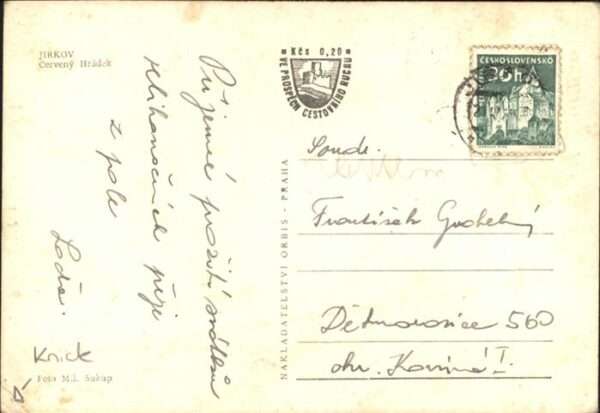 JIRKOV
Červený Hrádek
Příjemné prožití svátků
velikonočních přeje
z pole
Loďa.
Knick
Foto M.I. Sukup
NAKLADATELSTVÍ ORBIS - PRAHA
Kčs 0,20
VE PROSPĚCH CESTOVNÍHO RUCHU
ČESKOSLOVENSKO
30 h
Soudr.
František
Dětmarovice 560
okr. Karviná I.